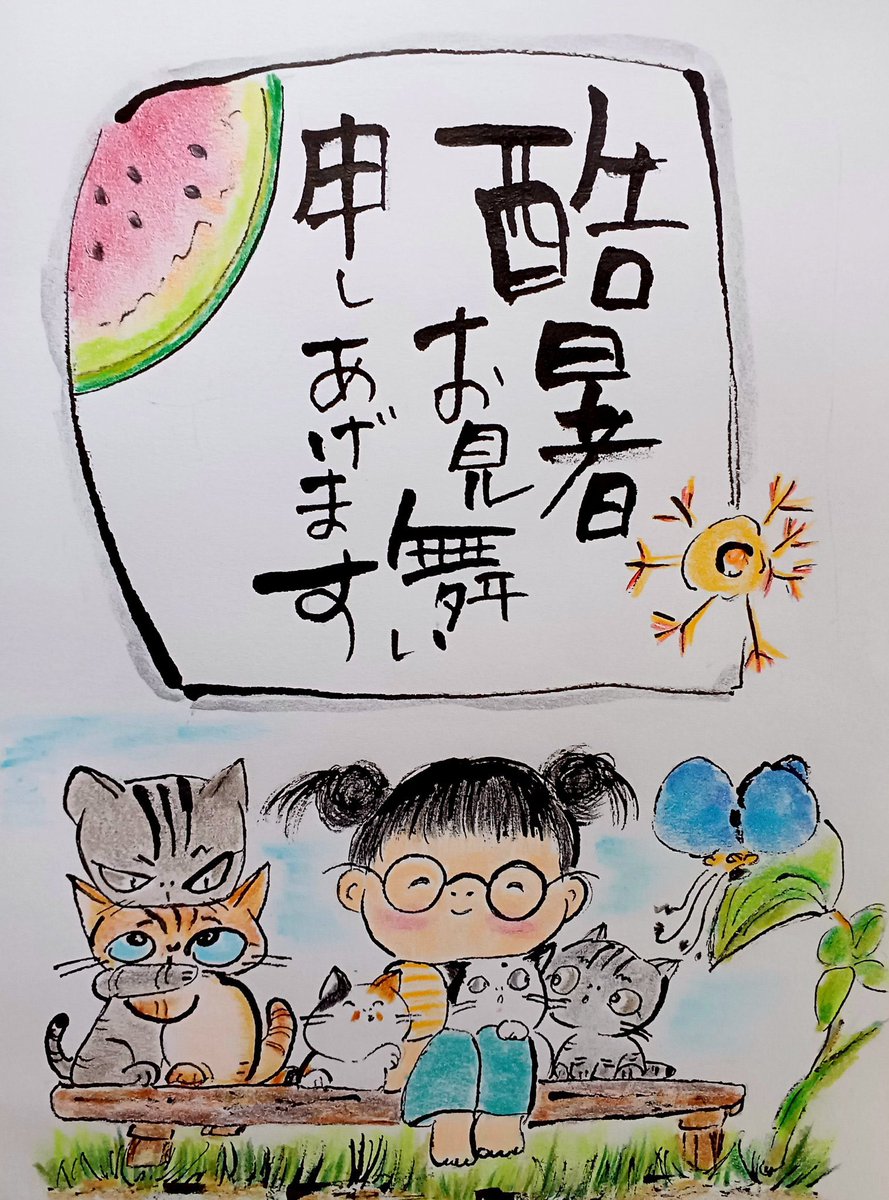 酷暑
お見舞い
申しあげます